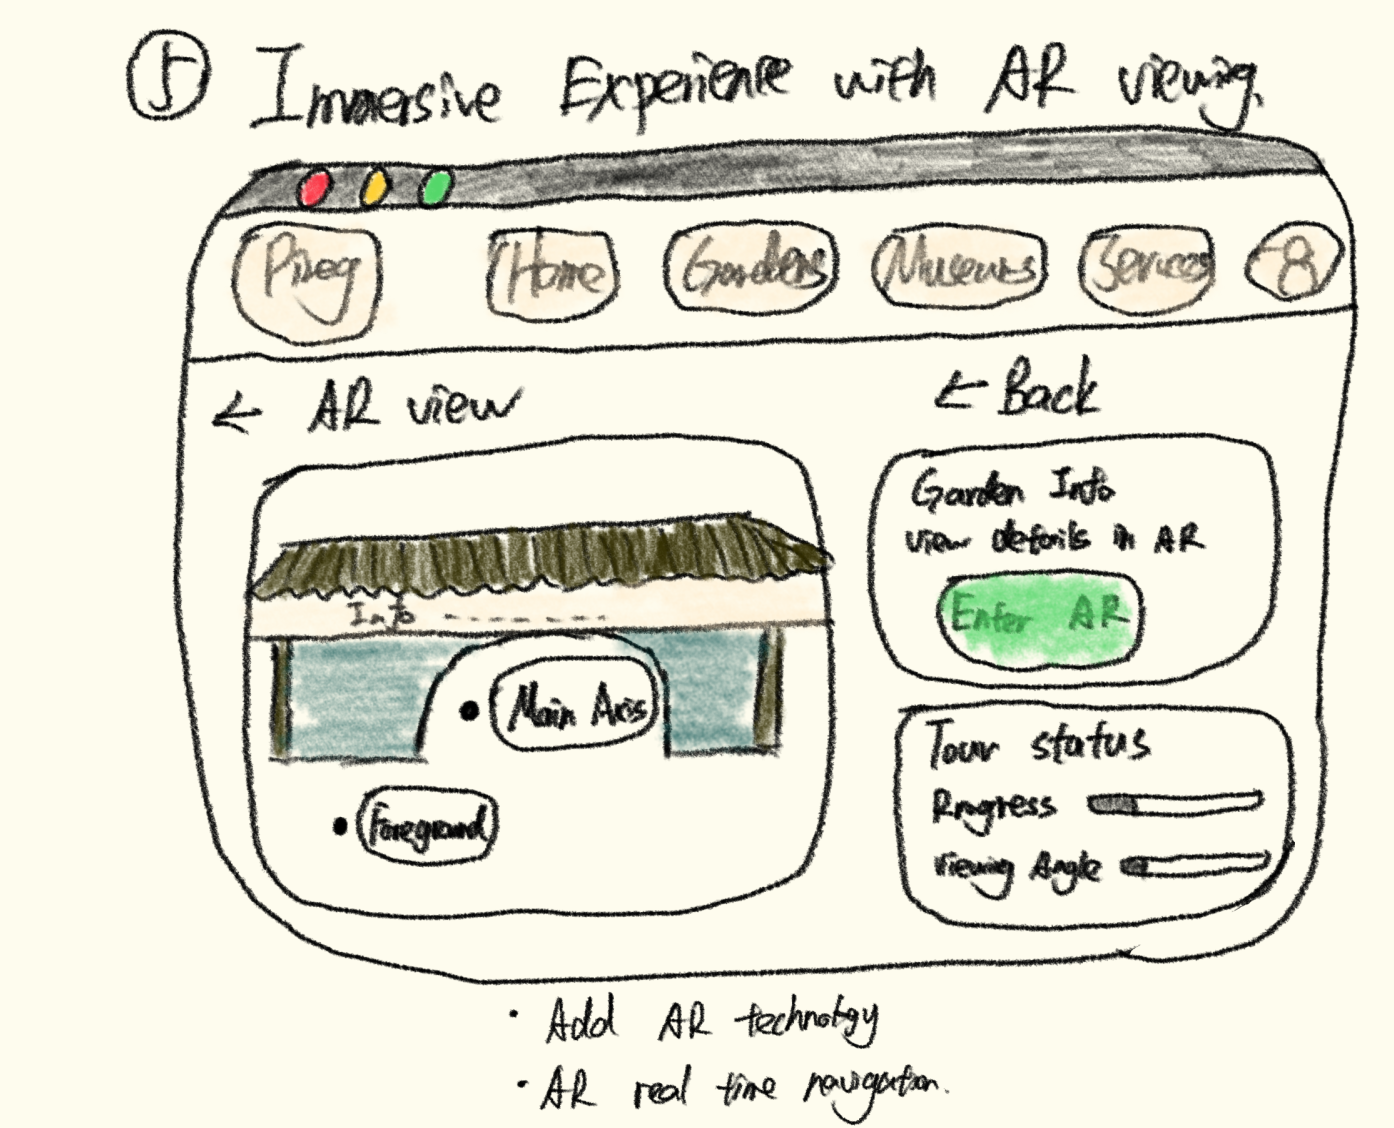 ⑤ Immersive Experience with AR viewing.
Pineg Home Gardens Museums Services
← AR view
← Back
Garden Info
view details in AR
Enter AR
Info ------
Main Axis
Foreground
Tour status
Progress
Viewing Angle
· Add AR technology
· AR real time navigation.